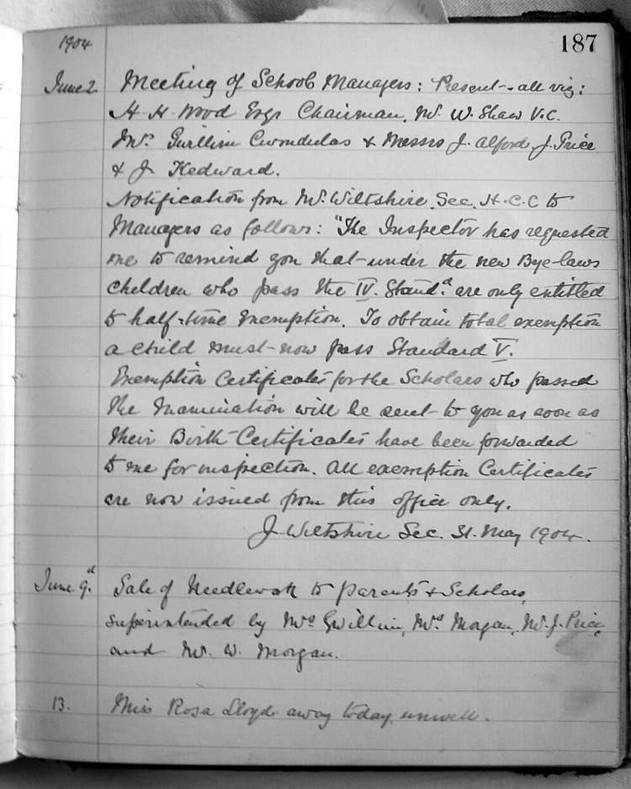 1904
187
June 2. Meeting of School Managers: Present - all viz:
H. H. Wood Esqr Chairman, Mr. W. Shaw V.C.
Mrs. Gwillim & Messrs J. Alford, J. Price
& J. Kedward.
Notification from Mr. Wiltshire. Sec. H.C.C to
Managers as follows: "The Inspector has requested
me to remind you that under the new Bye-laws
children who pass the IV. Stand.d are only entitled
to half-time exemption. To obtain total exemption
a child must now pass Standard V.
Exemption Certificates for the Scholars who passed
the Examination will be sent to you as soon as
their Birth Certificates have been forwarded
to me for inspection. All exemption Certificates
are now issued from this office only.
J. Wiltshire Sec. 31. May 1904.
June 9.th Sale of Needlework to parents & Scholars,
superintended by Mrs Gwillim, Mrs Morgan, Mr. J. Price,
and Mr. W. Morgan.
13. Miss Rosa Lloyd away today, unwell.